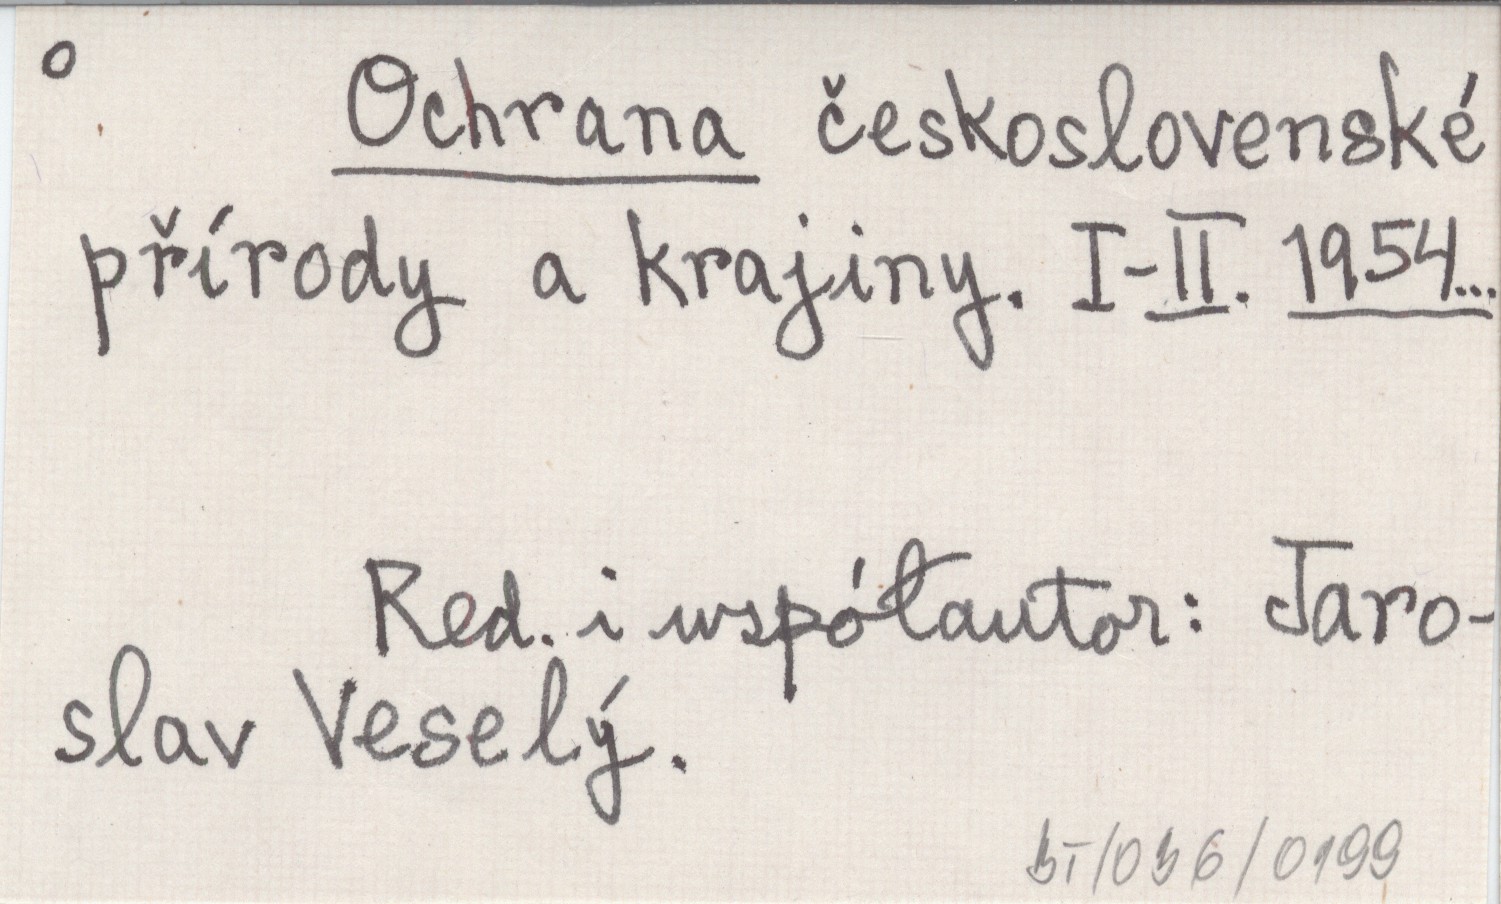 o
Ochrana československé
přírody a krajiny. I-II. 1954...
Red. i współautor: Jaro-
slav Veselý.
BT/036/0199